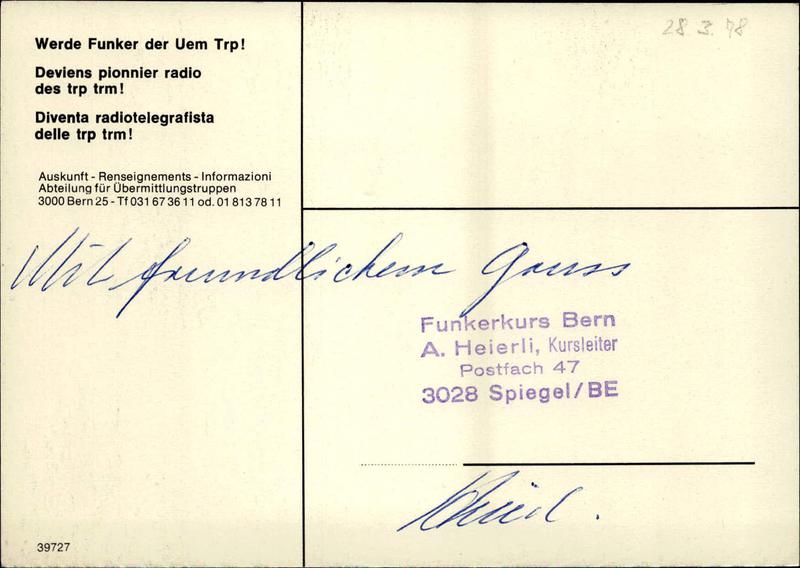 28.3.78
Werde Funker der Uem Trp!
Deviens pionnier radio
des trp trm!
Diventa radiotelegrafista
delle trp trm!
Auskunft - Renseignements - Informazioni
Abteilung für Übermittlungstruppen
3000 Bern 25 - Tf 031 67 36 11 od. 01 813 78 11
Mit freundlichem Gruss
Funkerkurs Bern
A. Heierli, Kursleiter
Postfach 47
3028 Spiegel/BE
39727